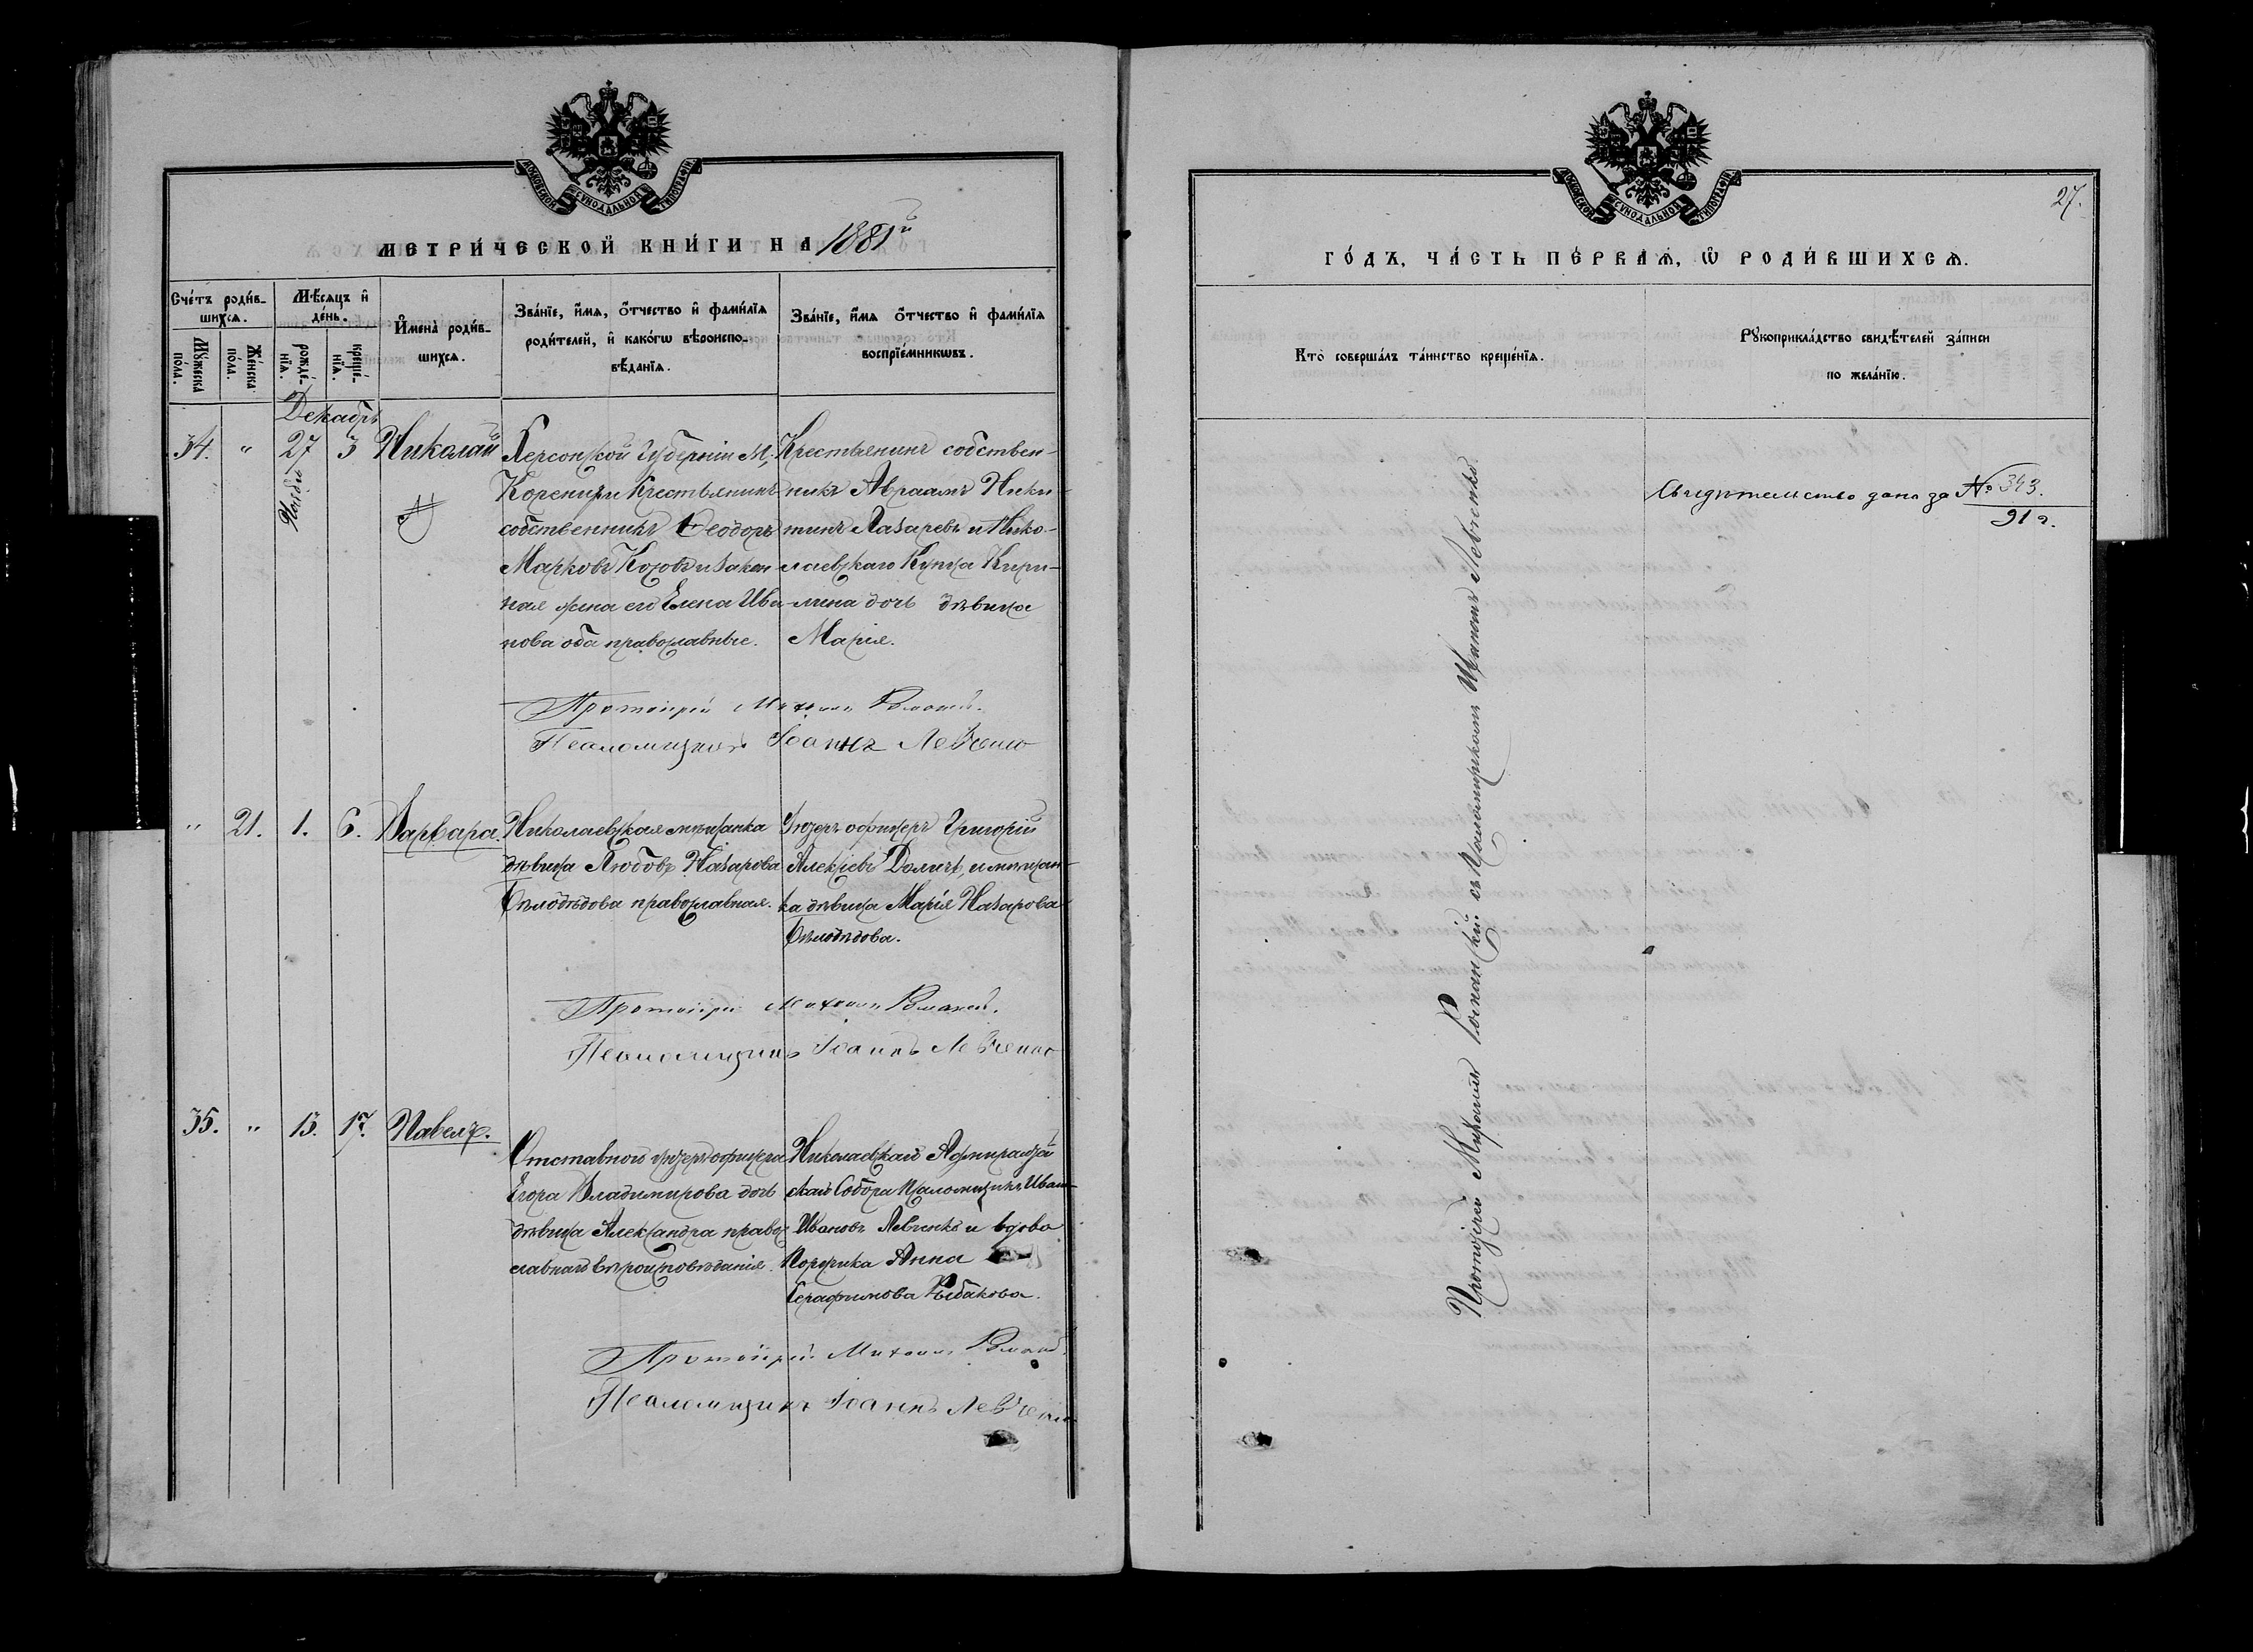 МОСКОВСКОЙ СѴНОДАЛЬНОЙ ТИПОГРАФІИ
МЕТРИ́ЧЕСКОЙ КНИ́ГИ НА 1881й
Сче́тъ роди́в-
шихсѧ.
Мꙋ́жеска
по́ла.
Же́нска
по́ла.
Мѣ́сѧцъ и҆
день.
рожде́-
нїѧ.
креще́-
нїѧ.
И҆мена̀ роди́в-
шихсѧ.
Зва́нїе, и҆́мѧ, ѻ҆́тчество и҆ фами́лїѧ
роди́телей, и҆ како́гѡ вѣроиспо-
вѣ́данїѧ.
Зва́нїе, и҆́мѧ ѻ҆́тчество и҆ фами́лїѧ
воспрїе́мникѡвъ.
Декабрь
34. " 27 3 Николай
Ноября
Херсонской Губерніи М.
Коренихи Крестьянинъ
собственникъ Ѳеодоръ
Марковъ и закон
ная жена его Елена Ива
нова оба православные.
Крестьянинъ собствен-
никъ Авраамъ Ники-
тинъ Лазаревъ и Нико-
лаевскаго Купца Кири-
лина дочь дѣвица
Марія.
Протоіерей Михаилъ
Псаломщикъ Іоаннъ Левченко
" 21. 1. 6. Варвара.
Николаевская мѣщанка
дѣвица Любовь Назарова
Бѣлодѣдова православная.
Унтеръ офицеръ Григорій
Алексѣевъ и мѣщан-
ка дѣвица Марія Назарова
Бѣлодѣдова.
Протоіерей Михаилъ
Псаломщикъ Іоаннъ Левченко
35. " 13. 17. Павелъ.
Отставного унтеръ офицера
Егора Владимирова дочь
дѣвица Александра право
славнаго вѣроисповѣданія.
Николаевскаго Адмиралтей
скаго Собора Псаломщикъ Иванъ
Ивановъ Левченко и вдова
Анна
Серафимова Рыбакова.
Протоіерей Михаилъ
Псаломщикъ Іоаннъ Левченко
МОСКОВСКОЙ СѴНОДАЛЬНОЙ ТИПОГРАФІИ
27.
ГО́ДЪ, ЧА́СТЬ ПЕ́РВАѦ, Ѡ҆ РОДИ́ВШИХСѦ.
Кто̀ соверша́лъ та́инство креще́нїѧ.
Рꙋкоприкла́дство свидѣ́телей за́писи
по жела́нїю.
Свидѣтельство дано за № 343.
91 г.
Протоіерей Михаилъ Романскій съ Псаломщикомъ Іоанномъ Левченко